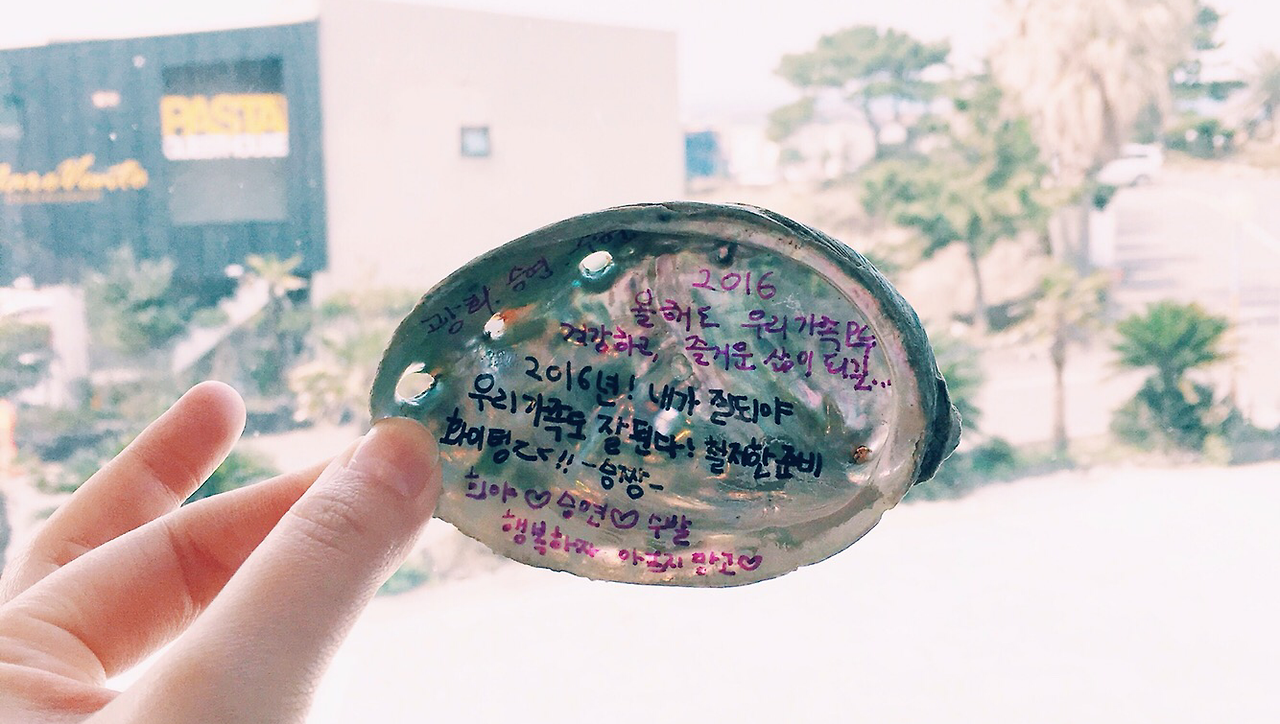 PASTA
2016
올해도 우리가족
건강하고, 즐거운 삶이 되길...
2016년! 내가 잘되야
우리가족도 잘된다! 철저한준비
화이팅 !! -승짱-
희야♡승연♡수발
행복하자 아프지 말고♡
광희. 승연